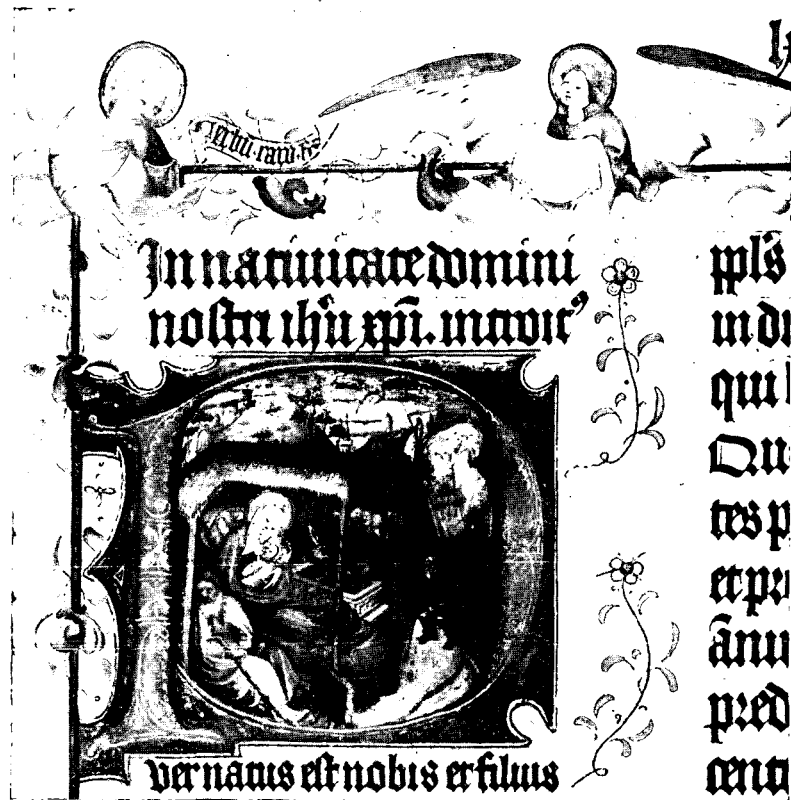 Verbū. caro. fc̄
In natiuitate domini
nostri ih̄u xp̄i. introit⁹
P
uer natus est nobis et filius
ppl̄s
in di
qui
Qu
tes p
et pr
ānu
pred
centi